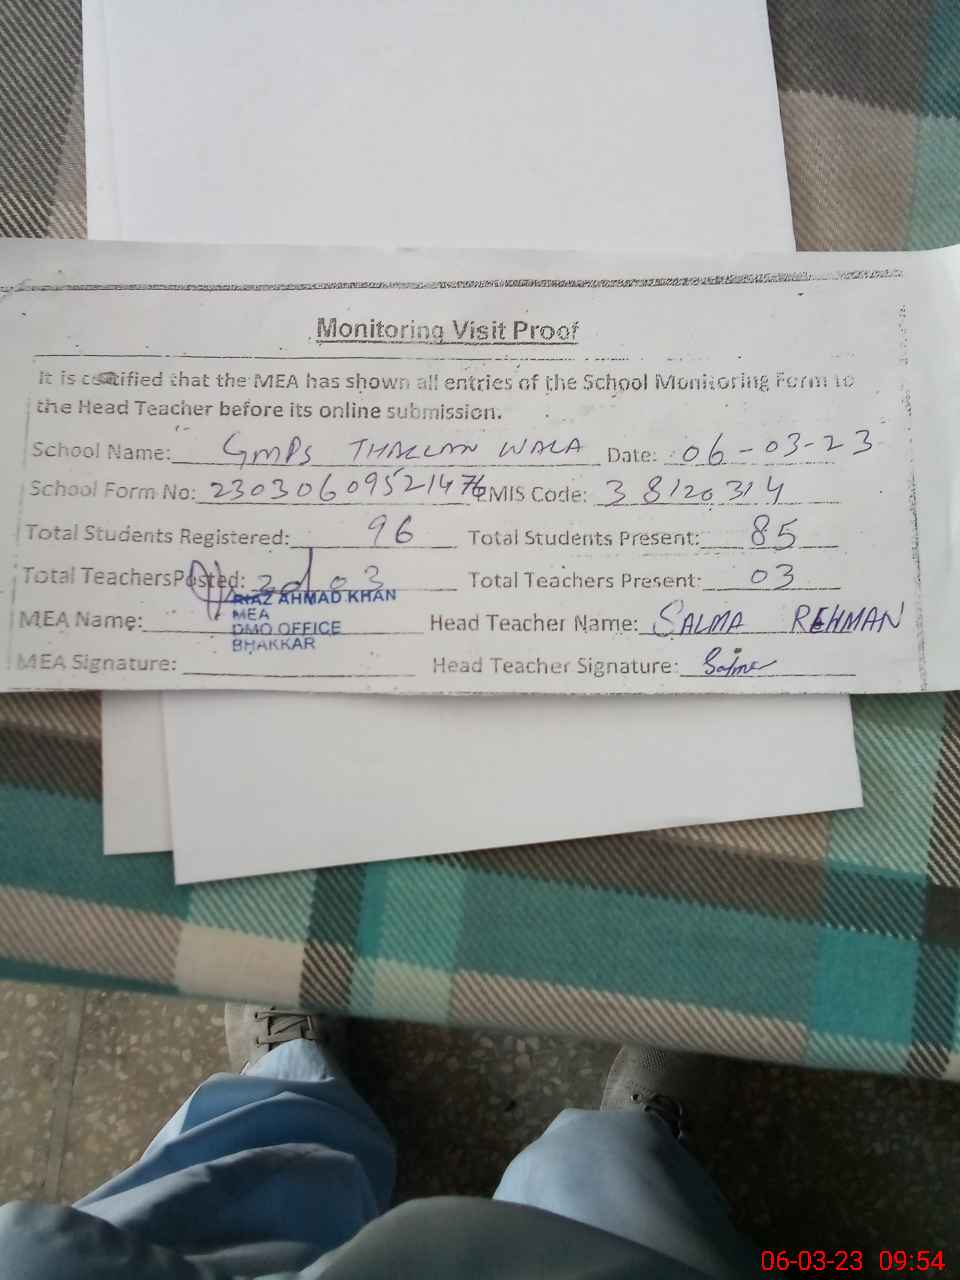 Monitoring Visit Proof
It is certified that the MEA has shown all entries of the School Monitoring Form to
the Head Teacher before its online submission.
School Name: GMPS THALLAN WALA Date: 06-03-23
School Form No: 2303060952147 EMIS Code: 38120314
Total Students Registered: 96 Total Students Present: 85
Total Teachers Posted: 03 Total Teachers Present: 03
RIAZ AHMAD KHAN
MEA
MEA Name: Head Teacher Name: SALMA REHMAN
DMO OFFICE
BHAKKAR
MEA Signature: Head Teacher Signature: Salma
06-03-23 09:54